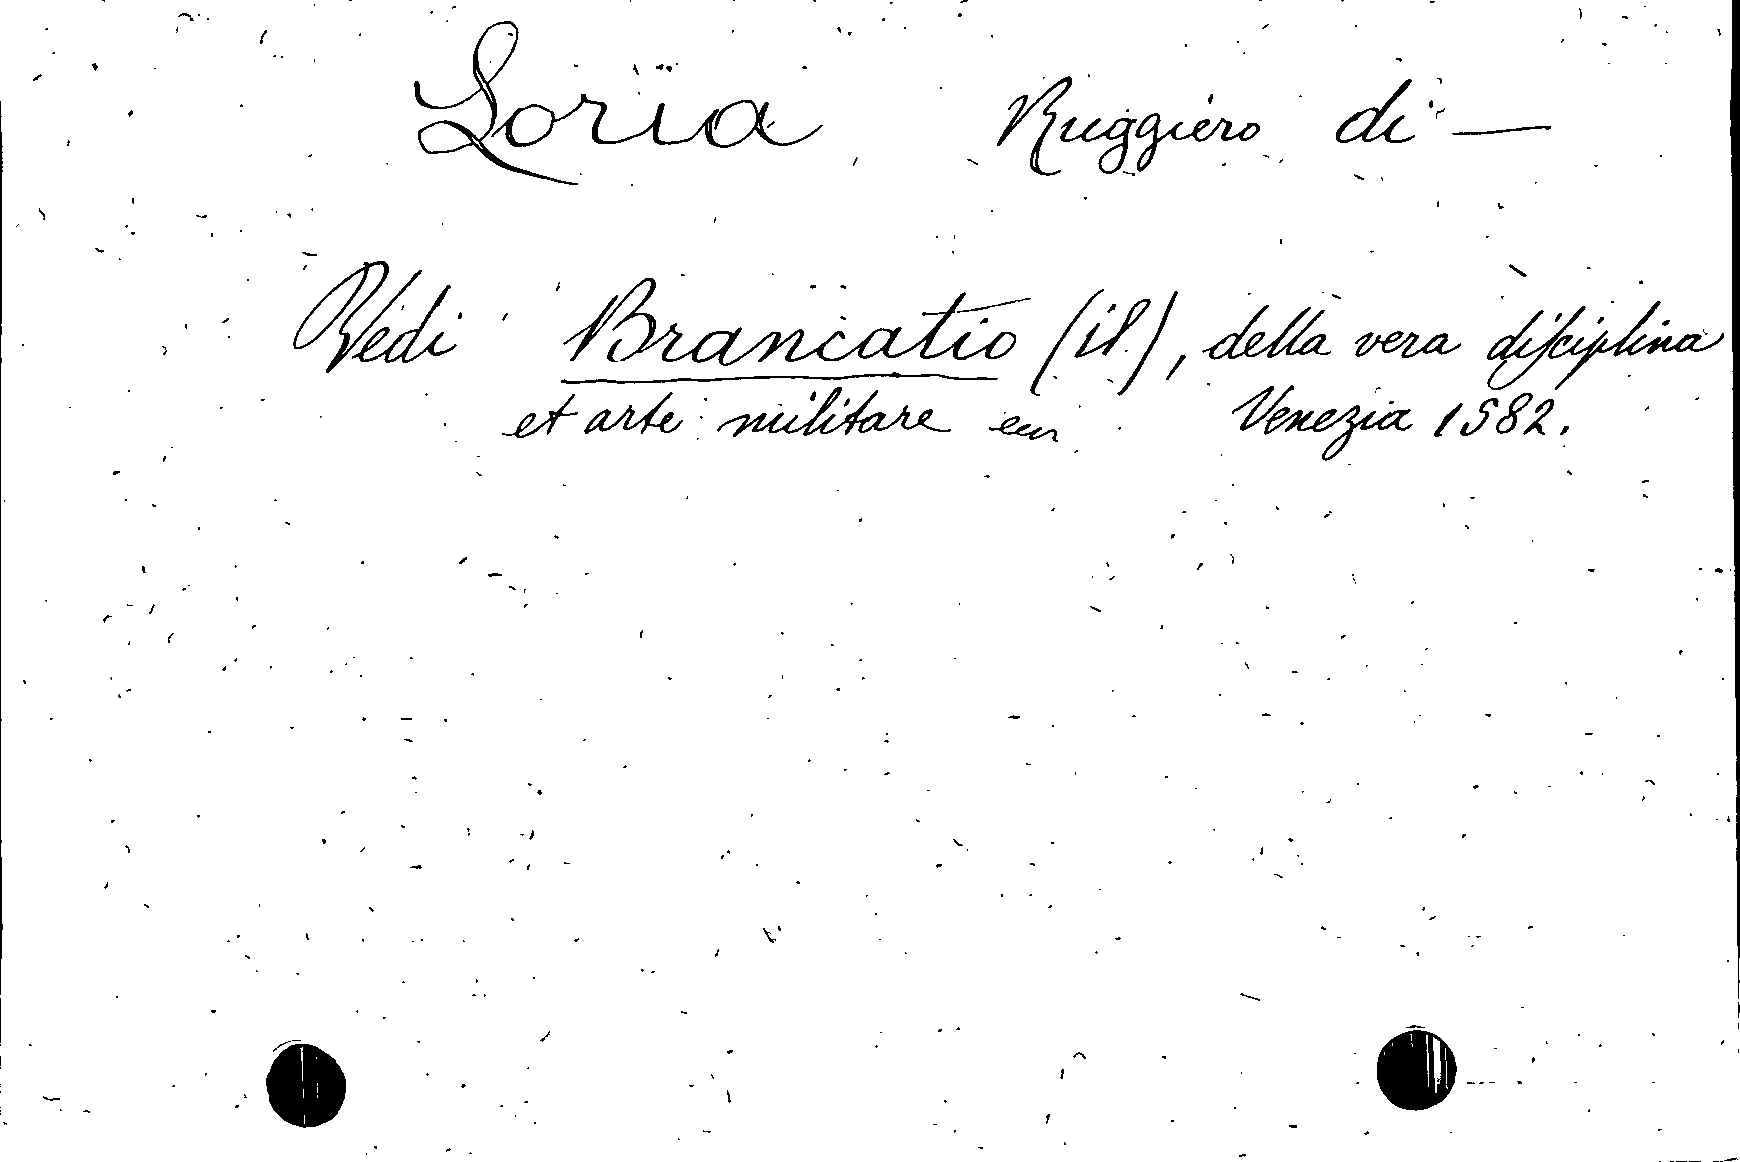 Loria Ruggiero di —
Vedi Brancatio (il), della vera disciplina
et arte militare ecc Venezia 1582.